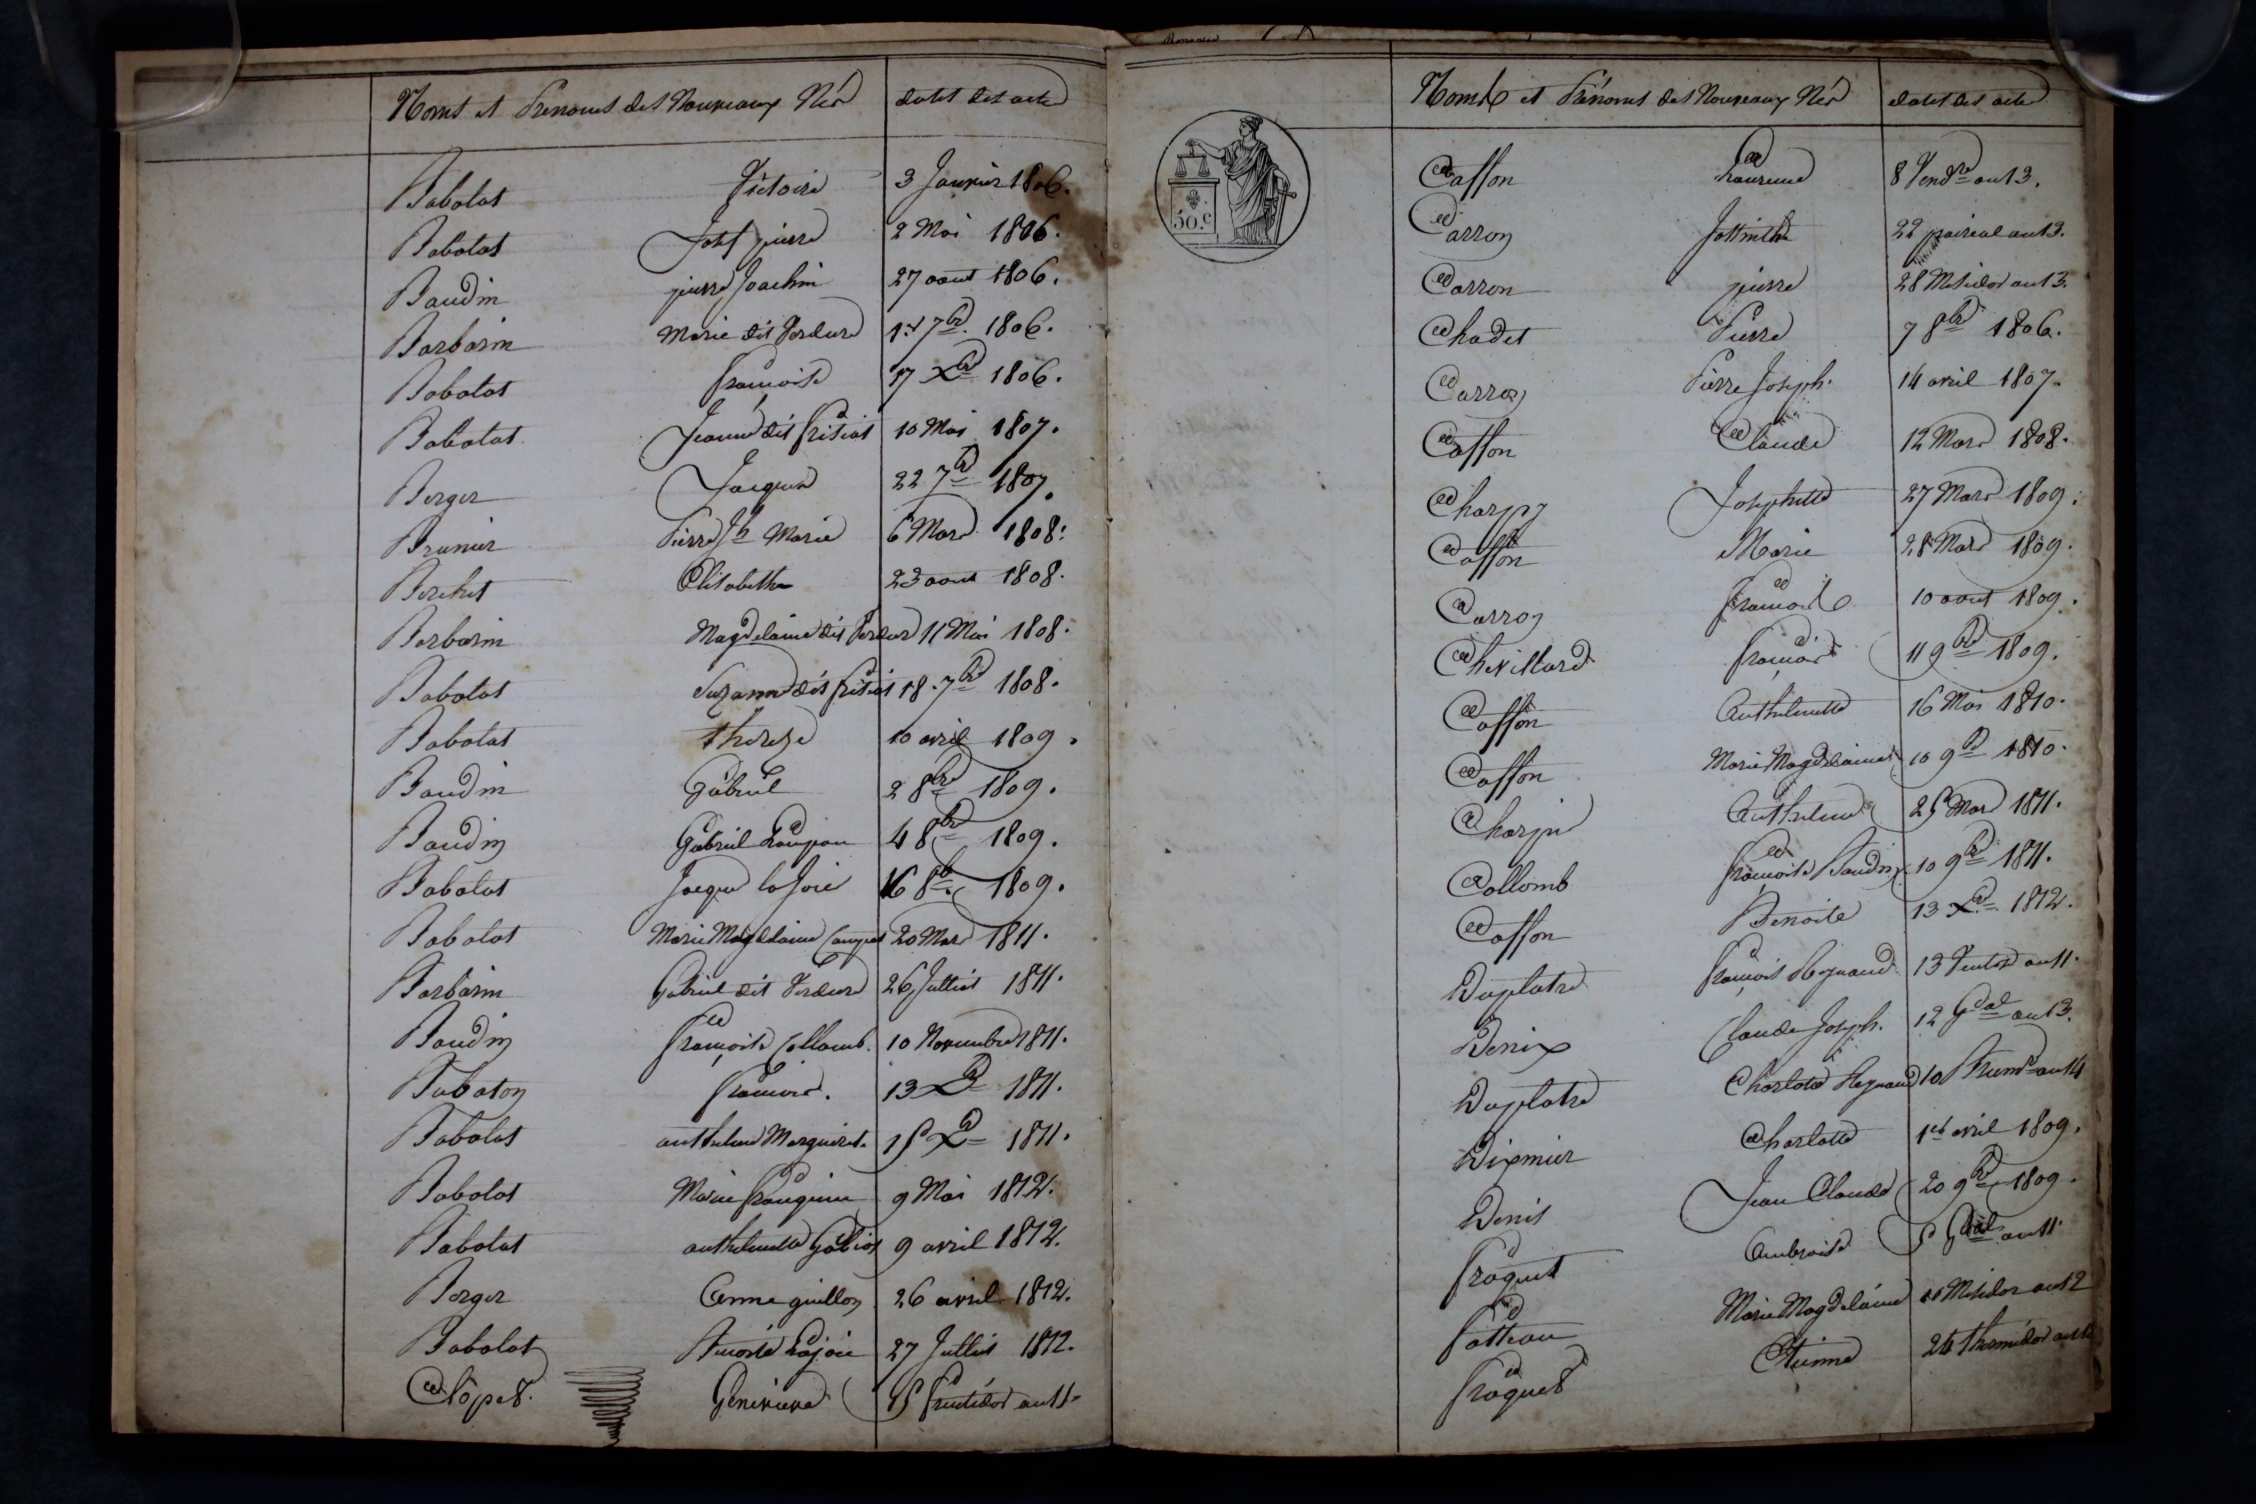 Noms et Prénoms des Nouveaux Nés dates des actes
Babolat Victoire 3 Janvier 1806.
Babolat Josh pierre 2 Mai 1806.
Baudin pierre Joachin 27 aout 1806.
Barbarin Marie dit Verdure 1er 7bre 1806.
Babolat francoise 17 Xbre 1806.
Babolat Jeanne dit 10 Mai 1807.
Berger Jacques 22 7bre 1807.
Brunier Pierre Jh Marie 6 Mars 1808.
Berchet Elisabeth 23 aout 1808.
Barbarin Magdelaine dit Verdure 11 Mai 1808.
Babolat Suzanne dit 18 7bre 1808.
Babolat thereze 10 avril 1809.
Baudin Gabriel 2 8bre 1809.
Baudin Gabriel 4 8bre 1809.
Babolat Jacque la Joie 16 8bre 1809.
Babolat Marie Magdelaine 20 Mars 1811.
Barbarin Gabriel dit Verdure 26 Juillet 1811.
Baudin francoise Collomb. 10 Novembre 1811.
Babolat francois. 13 Xbre 1811.
Babolat anthelme Marguerite 15 Xbre 1811.
Babolat Marie françoise 9 Mai 1812.
Babolat anthelmette 9 avril 1812.
Berger Anne guillon 26 avril 1812.
Babolat Benoite Lajoie 27 Juillet 1812.
Genevieve 15 fructidor an 11.
Noms et Prénoms des Nouveaux Nés dates des actes
50.C
Caffon Laurence 8 Vendre an 13.
Carron Jossinthe 22 prairial an 13.
Carron pierre 28 Messidor an 13.
Chadet Pierre 7 8bre 1806.
Carron Pierre Joseph. 14 avril 1807.
Caffon Claude 12 Mars 1808.
Charpy Josephette 27 Mars 1809.
Caffon Marie 28 Mars 1809.
Carron francoise 10 aout 1809.
Chevillard francois 11 9bre 1809.
Caffon Anthelmette 16 Mai 1810.
Caffon Marie Magdelaine 10 9bre 1810.
Charpin Anthelme 25 Mars 1811.
Collomb françoise Baudin 10 9bre 1811.
Caffon Benoite 13 Xbre 1812.
Duplatre françois Reynaud 13 Ventose an 11.
Denix Claude Joseph. 12 Gal an 13.
Duplatre Charlotte Reynaud 10 Brumre an 14
Dixmier Charlotte 1er avril 1809.
Denis Jean Claude 20 9bre 1809.
fraquet Ambroise 5 Gal an 11.
Marie Magdelaine Messidor an 12
fraquet Etienne 26 thermidor an 12